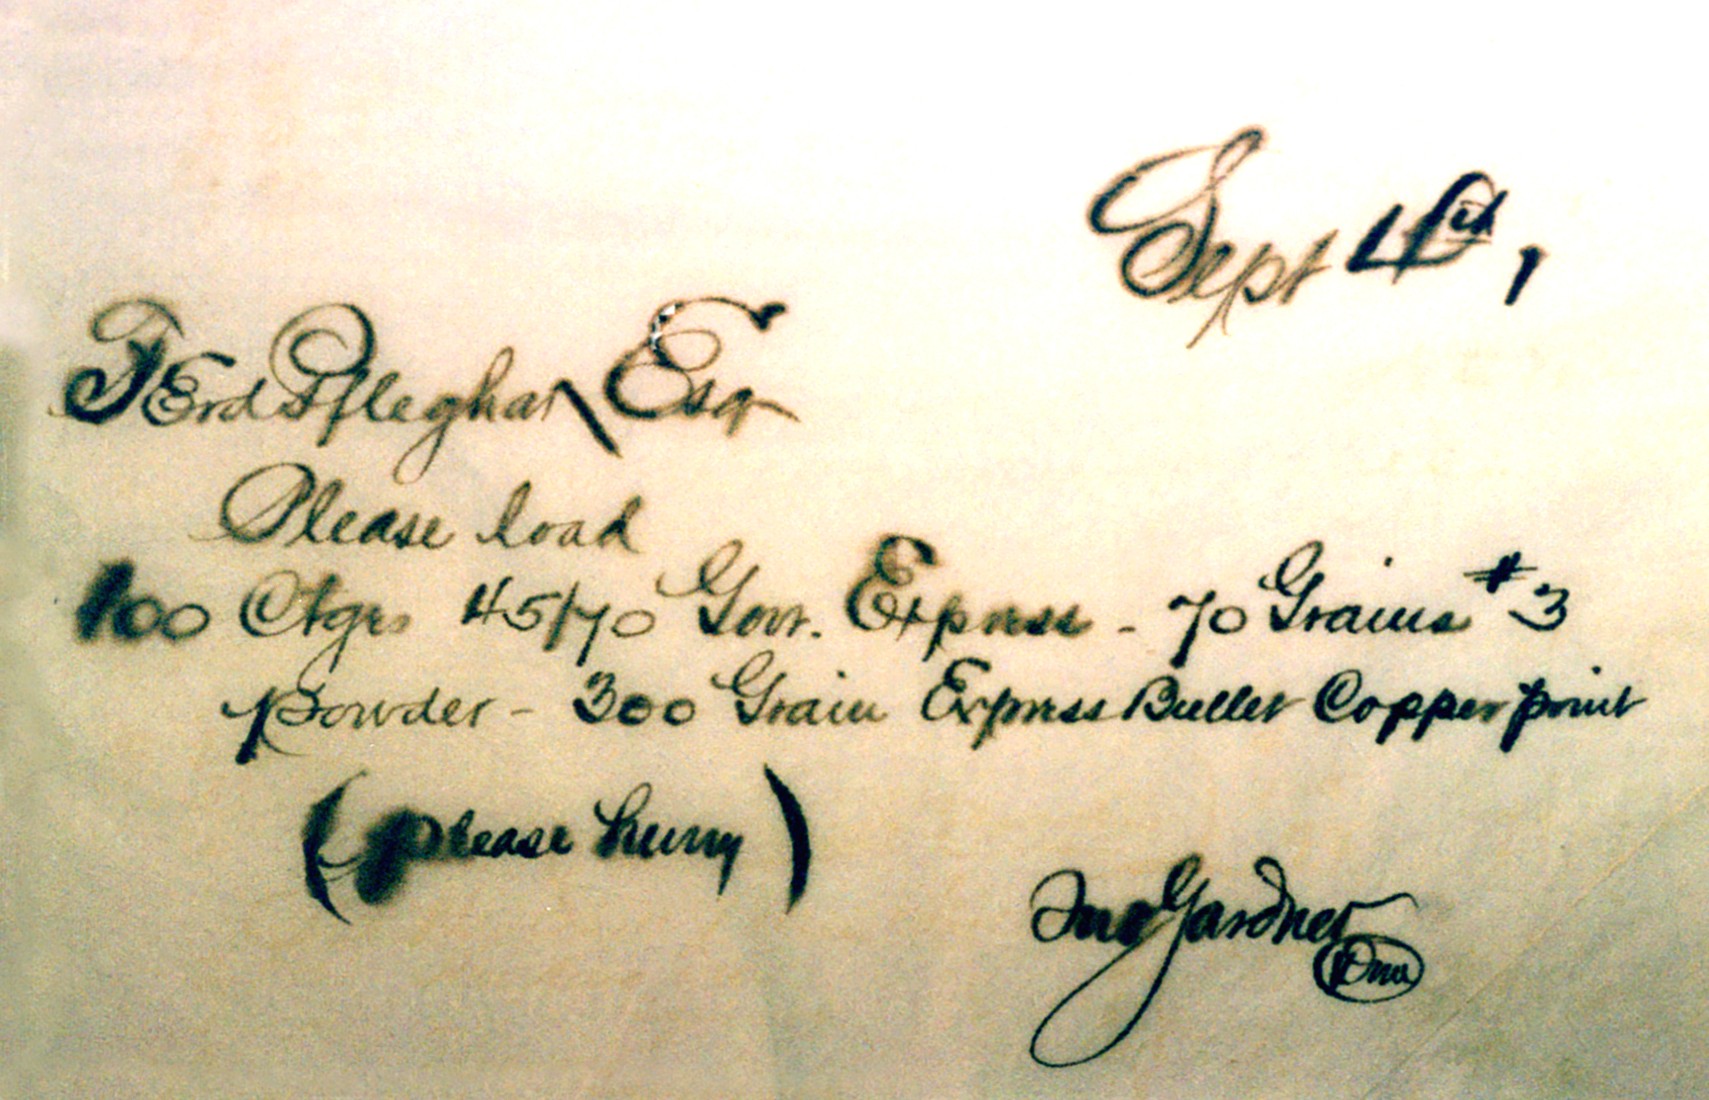 Sept 4th,
Ferd Pfleghar Esq
Please load
100 Ctgrs 45/70 Govr. Express - 70 Grains #3
powder - 300 Grain Express Bullet Copper point
(please hurry)
Jno Gardner